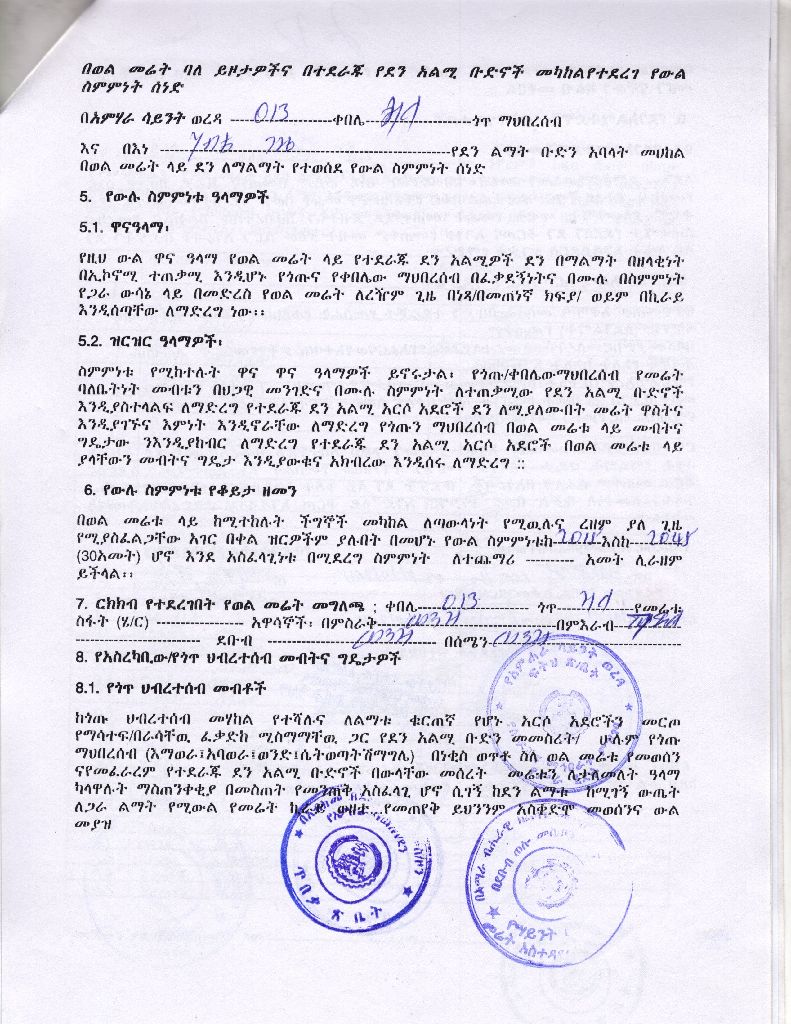 በወል መሬት ባለ ይዞታዎችና በተደራጁ የደን አልሚ ቡድኖች መካከልየተደረገ የውል
ስምምነት ሰነድ
በአምሃራ ሳይንት ወረዳ ---013---ቀበሌ------ጎጥ ማህበረሰብ
እና በእነ ------የደን ልማት ቡድን አባላት መሀከል
በወል መሬት ላይ ደን ለማልማት የተወሰደ የውል ስምምነት ሰነድ
5. የውሉ ስምምነቱ ዓላማዎች
5.1. ዋናዓላማ፡
የዚህ ውል ዋና ዓላማ የወል መሬት ላይ የተደራጁ ደን አልሚዎች ደን በማልማት በዘላቂነት
በኢኮኖሚ ተጠቃሚ እንዲሆኑ የጎጡና የቀበሌው ማህበረሰብ በፈቃደኝነትና በሙሉ በስምምነት
የጋራ ውሳኔ ላይ በመድረስ የወል መሬት ለረዥም ጊዜ በነጻ/በመጠነኛ ክፍያ/ ወይም በኪራይ
እንዲሰጣቸው ለማድረግ ነው፡፡
5.2. ዝርዝር ዓላማዎች፡
ስምምነቱ የሚከተሉት ዋና ዋና ዓላማዎች ይኖሩታል፡ የጎጡ/ቀበሌውማህበረሰብ የመሬት
ባለቤትነት መብቱን በህጋዊ መንገድና በሙሉ ስምምነት ለተጠቃሚው የደን አልሚ ቡድኖች
እንዲያስተላልፍ ለማድረግ የተደራጁ ደን አልሚ አርሶ አደሮች ደን ለሚያለሙበት መሬት ዋስትና
እንዲያገኙና እምነት እንዲኖራቸው ለማድረግ የጎጡን ማህበረሰብ በወል መሬቱ ላይ መብትና
ግዴታው ንእንዲያከብር ለማድረግ የተደራጁ ደን አልሚ አርሶ አደሮች በወል መሬቱ ላይ
ያላቸውን መብትና ግዴታ እንዲያውቁና አክብረው እንዲሰሩ ለማድረግ ::
6. የውሉ ስምምነቱ የቆይታ ዘመን
በወል መሬቱ ላይ ከሚተከሉት ችግኞች መካከል ለጣውላነት የሚዉሉና ረዘም ያለ ጊዜ
የሚያስፈልጋቸው አገር በቀል ዝርዎችም ያሉበት በመሆኑ የውል ስምምነቱከ---2015---እስከ---2045
(30አመት) ሆኖ እንደ አስፈላጊነቱ በሚደረግ ስምምነት ለተጨማሪ ---------- አመት ሊራዘም
ይችላል፡፡
7. ርክክብ የተደረገበት የወል መሬት መግለጫ ; ቀበሌ---013--- ጎጥ------የመሬቱ
ስፋት (ሄ/ር) ---------------- አዋሳኞች፡ በምስራቅ------በምእራብ---
--------------------- ደቡብ ------ በሰሜን------
8. የአስረካቢው/የጎጥ ህብረተሰብ መብትና ግዴታዎች
8.1. የጎጥ ህብረተሰብ መብቶች
ከጎጡ ህብረተሰብ መሃከል የተሻሉና ለልማቱ ቁርጠኛ የሆኑ አርሶ አደሮችን መርጦ
የማሳተፍ/በራሳቸዉ ፈቃድከ ሚስማማቸዉ ጋር የደን አልሚ ቡድን መመስረት/ ሁሉም የጎጡ
ማህበረሰብ (እማወራ፤አባወራ፤ወንድ፤ሴትወጣትሽማግሌ) በነቂስ ወጥቶ ስለ ወል መሬቱ የመወሰን
ናየመፈራረም የተደራጁ ደን አልሚ ቡድኖች በውላቸው መሰረት መሬቱን ለታለመለት ዓላማ
ካላዋሉት ማስጠንቀቂያ በመስጠት የመንጠቅ አስፈላጊ ሆኖ ሲገኝ ከደን ልማቱ ከሚገኝ ውጤት
ለጋራ ልማት የሚውል የመሬት ኪራይ ወዘተ የመጠየቅ ይህንንም አስቀድሞ መወሰንና ውል
መያዝ
የአምሐራ ሳይንት ወረዳ
ፍትህ ጽ/ቤት
ጥበቃ ጽ ቤት